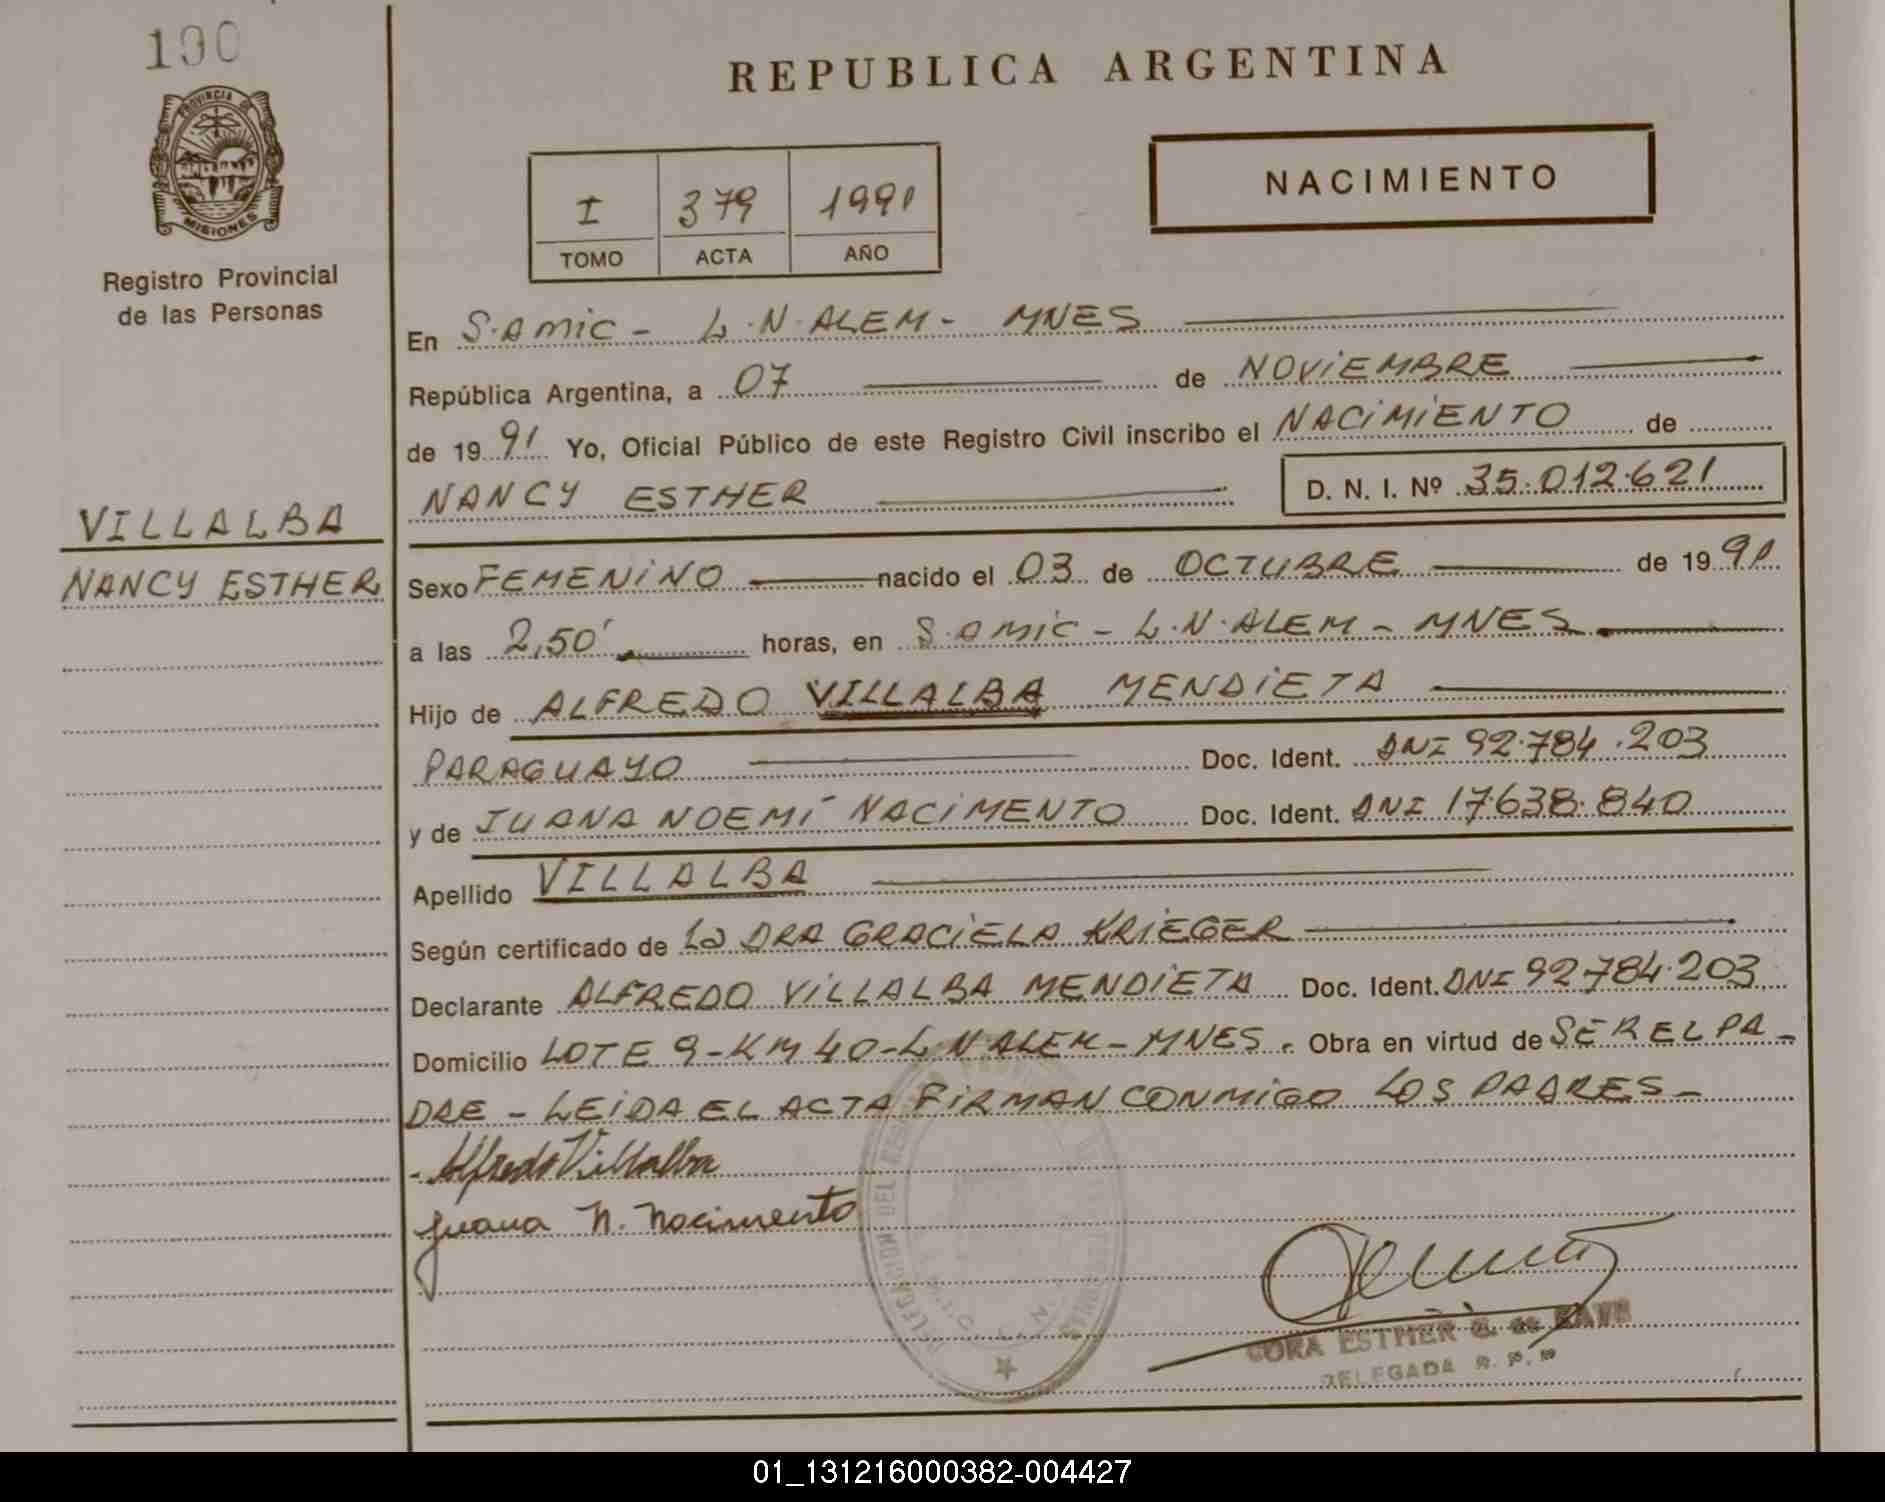 100
PROVINCIA DE
MISIONES
Registro Provincial
de las Personas
VILLALBA
NANCY ESTHER
REPUBLICA ARGENTINA
I 379 1991
TOMO ACTA AÑO
NACIMIENTO
En S. Amic - L.N. ALEM - MNES
República Argentina, a 07 de NOVIEMBRE
de 1991 Yo, Oficial Público de este Registro Civil inscribo el NACIMIENTO de
NANCY ESTHER D. N. I. Nº 35.012.621
Sexo FEMENINO nacido el 03 de OCTUBRE de 1991
a las 2,50' horas, en S. Amic - L.N. ALEM - MNES
Hijo de ALFREDO VILLALBA MENDIETA
PARAGUAYO Doc. Ident. DNI 92.784.203
y de JUANA NOEMÍ NACIMENTO Doc. Ident. DNI 17.638.840
Apellido VILLALBA
Según certificado de la DRA GRACIELA KRIEGER
Declarante ALFREDO VILLALBA MENDIETA Doc. Ident. DNI 92.784.203
Domicilio LOTE 9 - KM 40 - L.N. ALEM - MNES. Obra en virtud de SER EL PA-
DRE - LEIDA EL ACTA FIRMAN CONMIGO LOS PADRES -
Alfredo Villalba
Juana N. Nacimento
DELEGACION DEL
ESTHER
DELEGADA R. P. P
01_131216000382-004427